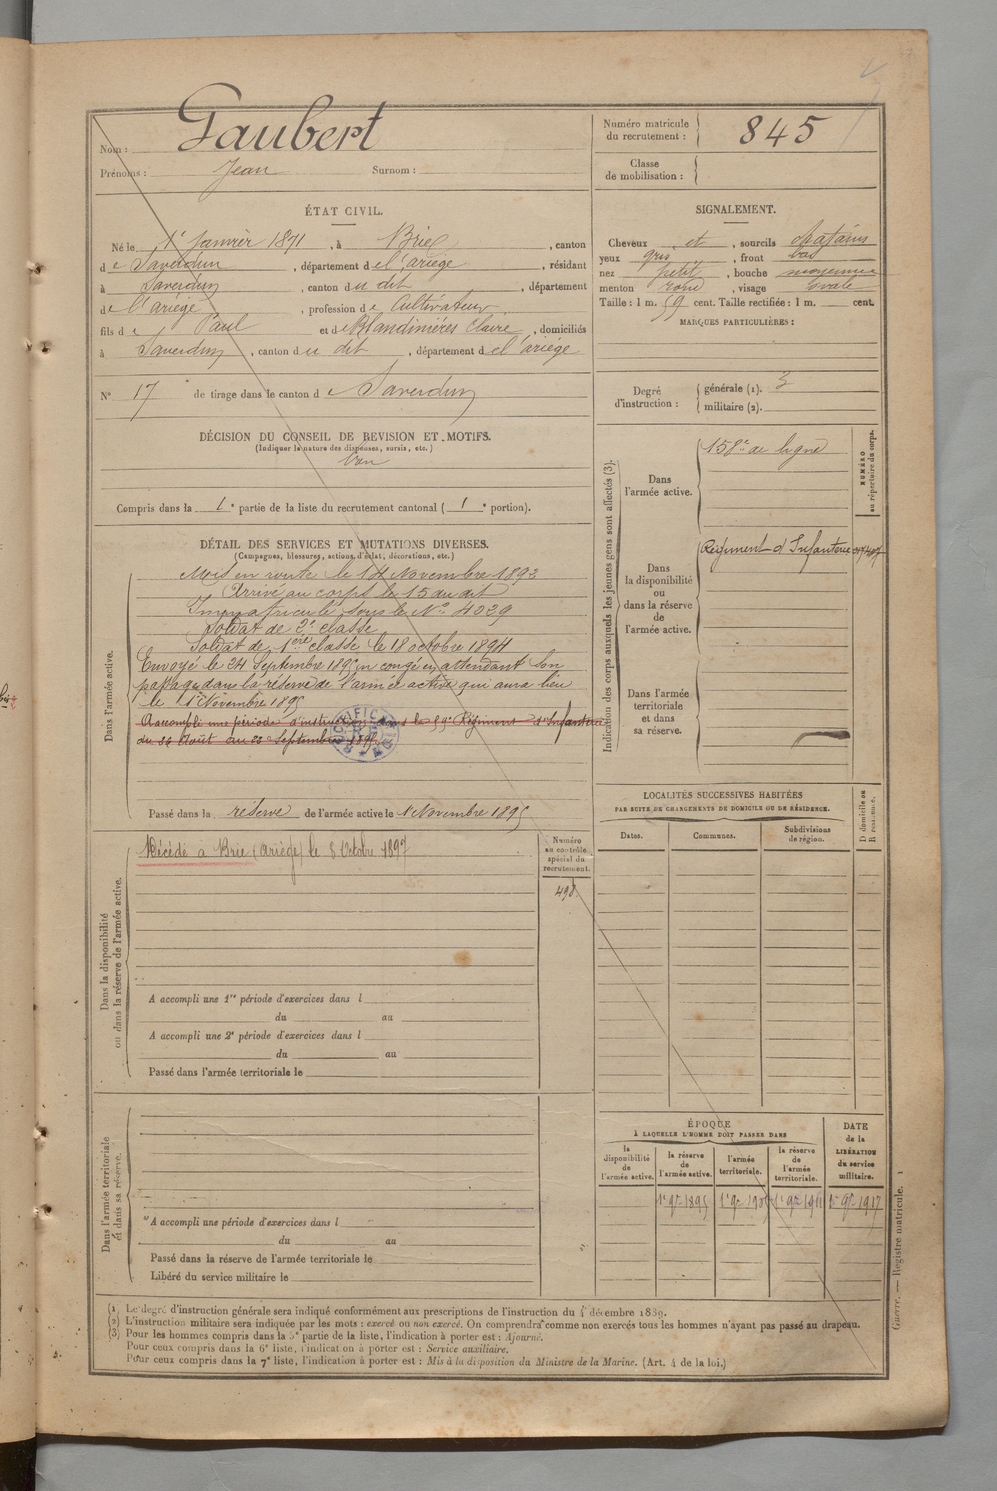 Nom : Gaubert
Prénoms : Jean Surnom :
Numéro matricule du recrutement : 845
Classe de mobilisation :
ÉTAT CIVIL.
Né le 1er Janvier 1871, à Brie, canton
de Saverdun, département de l'ariège, résidant
à Saverdun, canton du dit, département
de l'ariège, profession de Cultivateur
fils de Paul et de Blandinières Claire, domiciliés
à Saverdun, canton du dit, département de l'ariège
N° 17 de tirage dans le canton de Saverdun
SIGNALEMENT.
Cheveux et, sourcils chatains
yeux gris, front bas
nez petit, bouche moyenne
menton rond, visage ovale
Taille : 1 m. 59 cent. Taille rectifiée : 1 m. cent.
MARQUES PARTICULIÈRES :
Degré d'instruction : générale (1). 3
militaire (2).
DÉCISION DU CONSEIL DE REVISION ET MOTIFS.
(Indiquer la nature des dispenses, sursis, etc.)
bon
Compris dans la 1e partie de la liste du recrutement cantonal (1e portion).
DÉTAIL DES SERVICES ET MUTATIONS DIVERSES.
(Campagnes, blessures, actions d'éclat, décorations, etc.)
Dans l'armée active.
Mis en route le 14 Novembre 1892
Arrivé au corps le 15 du dit
Immatriculé sous le N° 4039
Soldat de 2e classe
Soldat de 1ère classe le 18 octobre 1894
Envoyé le 24 Septembre 1895 en congé en attendant son
passage dans la réserve de l'armée active qui aura lieu
le 1er Novembre 1895
A accompli une période d'instruction dans le 59e Régiment d'Infanterie
du 26 Août au 22 Septembre 1897
RECTIFICATION
Passé dans la réserve de l'armée active le 1er Novembre 1895
Indication des corps auxquels les jeunes gens sont affectés (3).
Dans l'armée active.
158e de ligne
NUMÉRO au répertoire du corps.
Dans la disponibilité ou dans la réserve de l'armée active.
Régiment d'Infanterie
Dans l'armée territoriale et dans sa réserve.
LOCALITÉS SUCCESSIVES HABITÉES
PAR SUITE DE CHANGEMENTS DE DOMICILE OU DE RÉSIDENCE.
Dates. Communes. Subdivisions de région. D domicile ou R résidence.
Dans la disponibilité ou dans la réserve de l'armée active.
Décédé à Brie (Ariège) le 8 Octobre 1897
Numéro au contrôle spécial du recrutement.
498
A accompli une 1re période d'exercices dans l
du au
A accompli une 2e période d'exercices dans l
du au
Passé dans l'armée territoriale le
Dans l'armée territoriale et dans sa réserve.
A accompli une période d'exercices dans l
du au
Passé dans la réserve de l'armée territoriale le
Libéré du service militaire le
ÉPOQUE
À LAQUELLE L'HOMME DOIT PASSER DANS
la disponibilité de l'armée active. la réserve de l'armée active. l'armée territoriale. la réserve de l'armée territoriale. DATE de la LIBÉRATION du service militaire.
1er 9bre 1895 1er 9bre 1905 1er 9bre 1911 1er 9bre 1917
(1) Le degré d'instruction générale sera indiqué conformément aux prescriptions de l'instruction du 4 décembre 1889.
(2) L'instruction militaire sera indiquée par les mots : exercé ou non exercé. On comprendra comme non exercés tous les hommes n'ayant pas passé au drapeau.
(3) Pour les hommes compris dans la 5e partie de la liste, l'indication à porter est : Ajourné.
Pour ceux compris dans la 6e liste, l'indication à porter est : Service auxiliaire.
Pour ceux compris dans la 7e liste, l'indication à porter est : Mis à la disposition du Ministre de la Marine. (Art. 4 de la loi.)
Guerre. — Registre matricule. 1